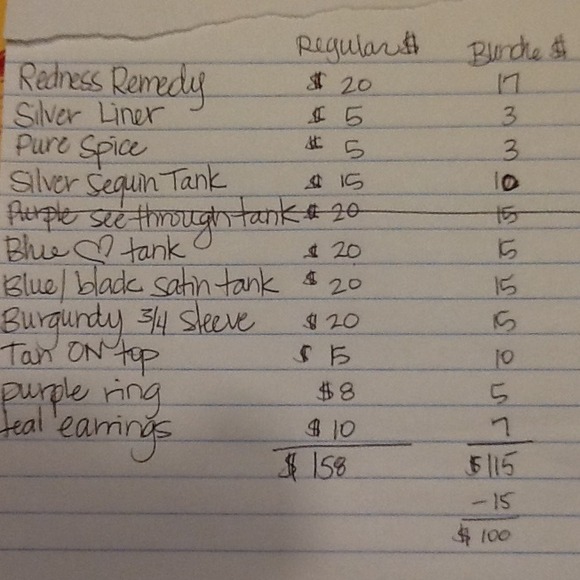 Regular $ Bundle $
Redness Remedy $ 20 17
Silver Liner $ 5 3
Pure Spice $ 5 3
Silver Sequin Tank $ 15 10
Purple see through tank $ 20 15
Blue ♡ tank $ 20 15
Blue/black satin tank $ 20 15
Burgundy 3/4 sleeve $ 20 15
Tan ON top $ 15 10
purple ring $8 5
teal earrings $ 10 7
$ 158 $115
-15
$ 100